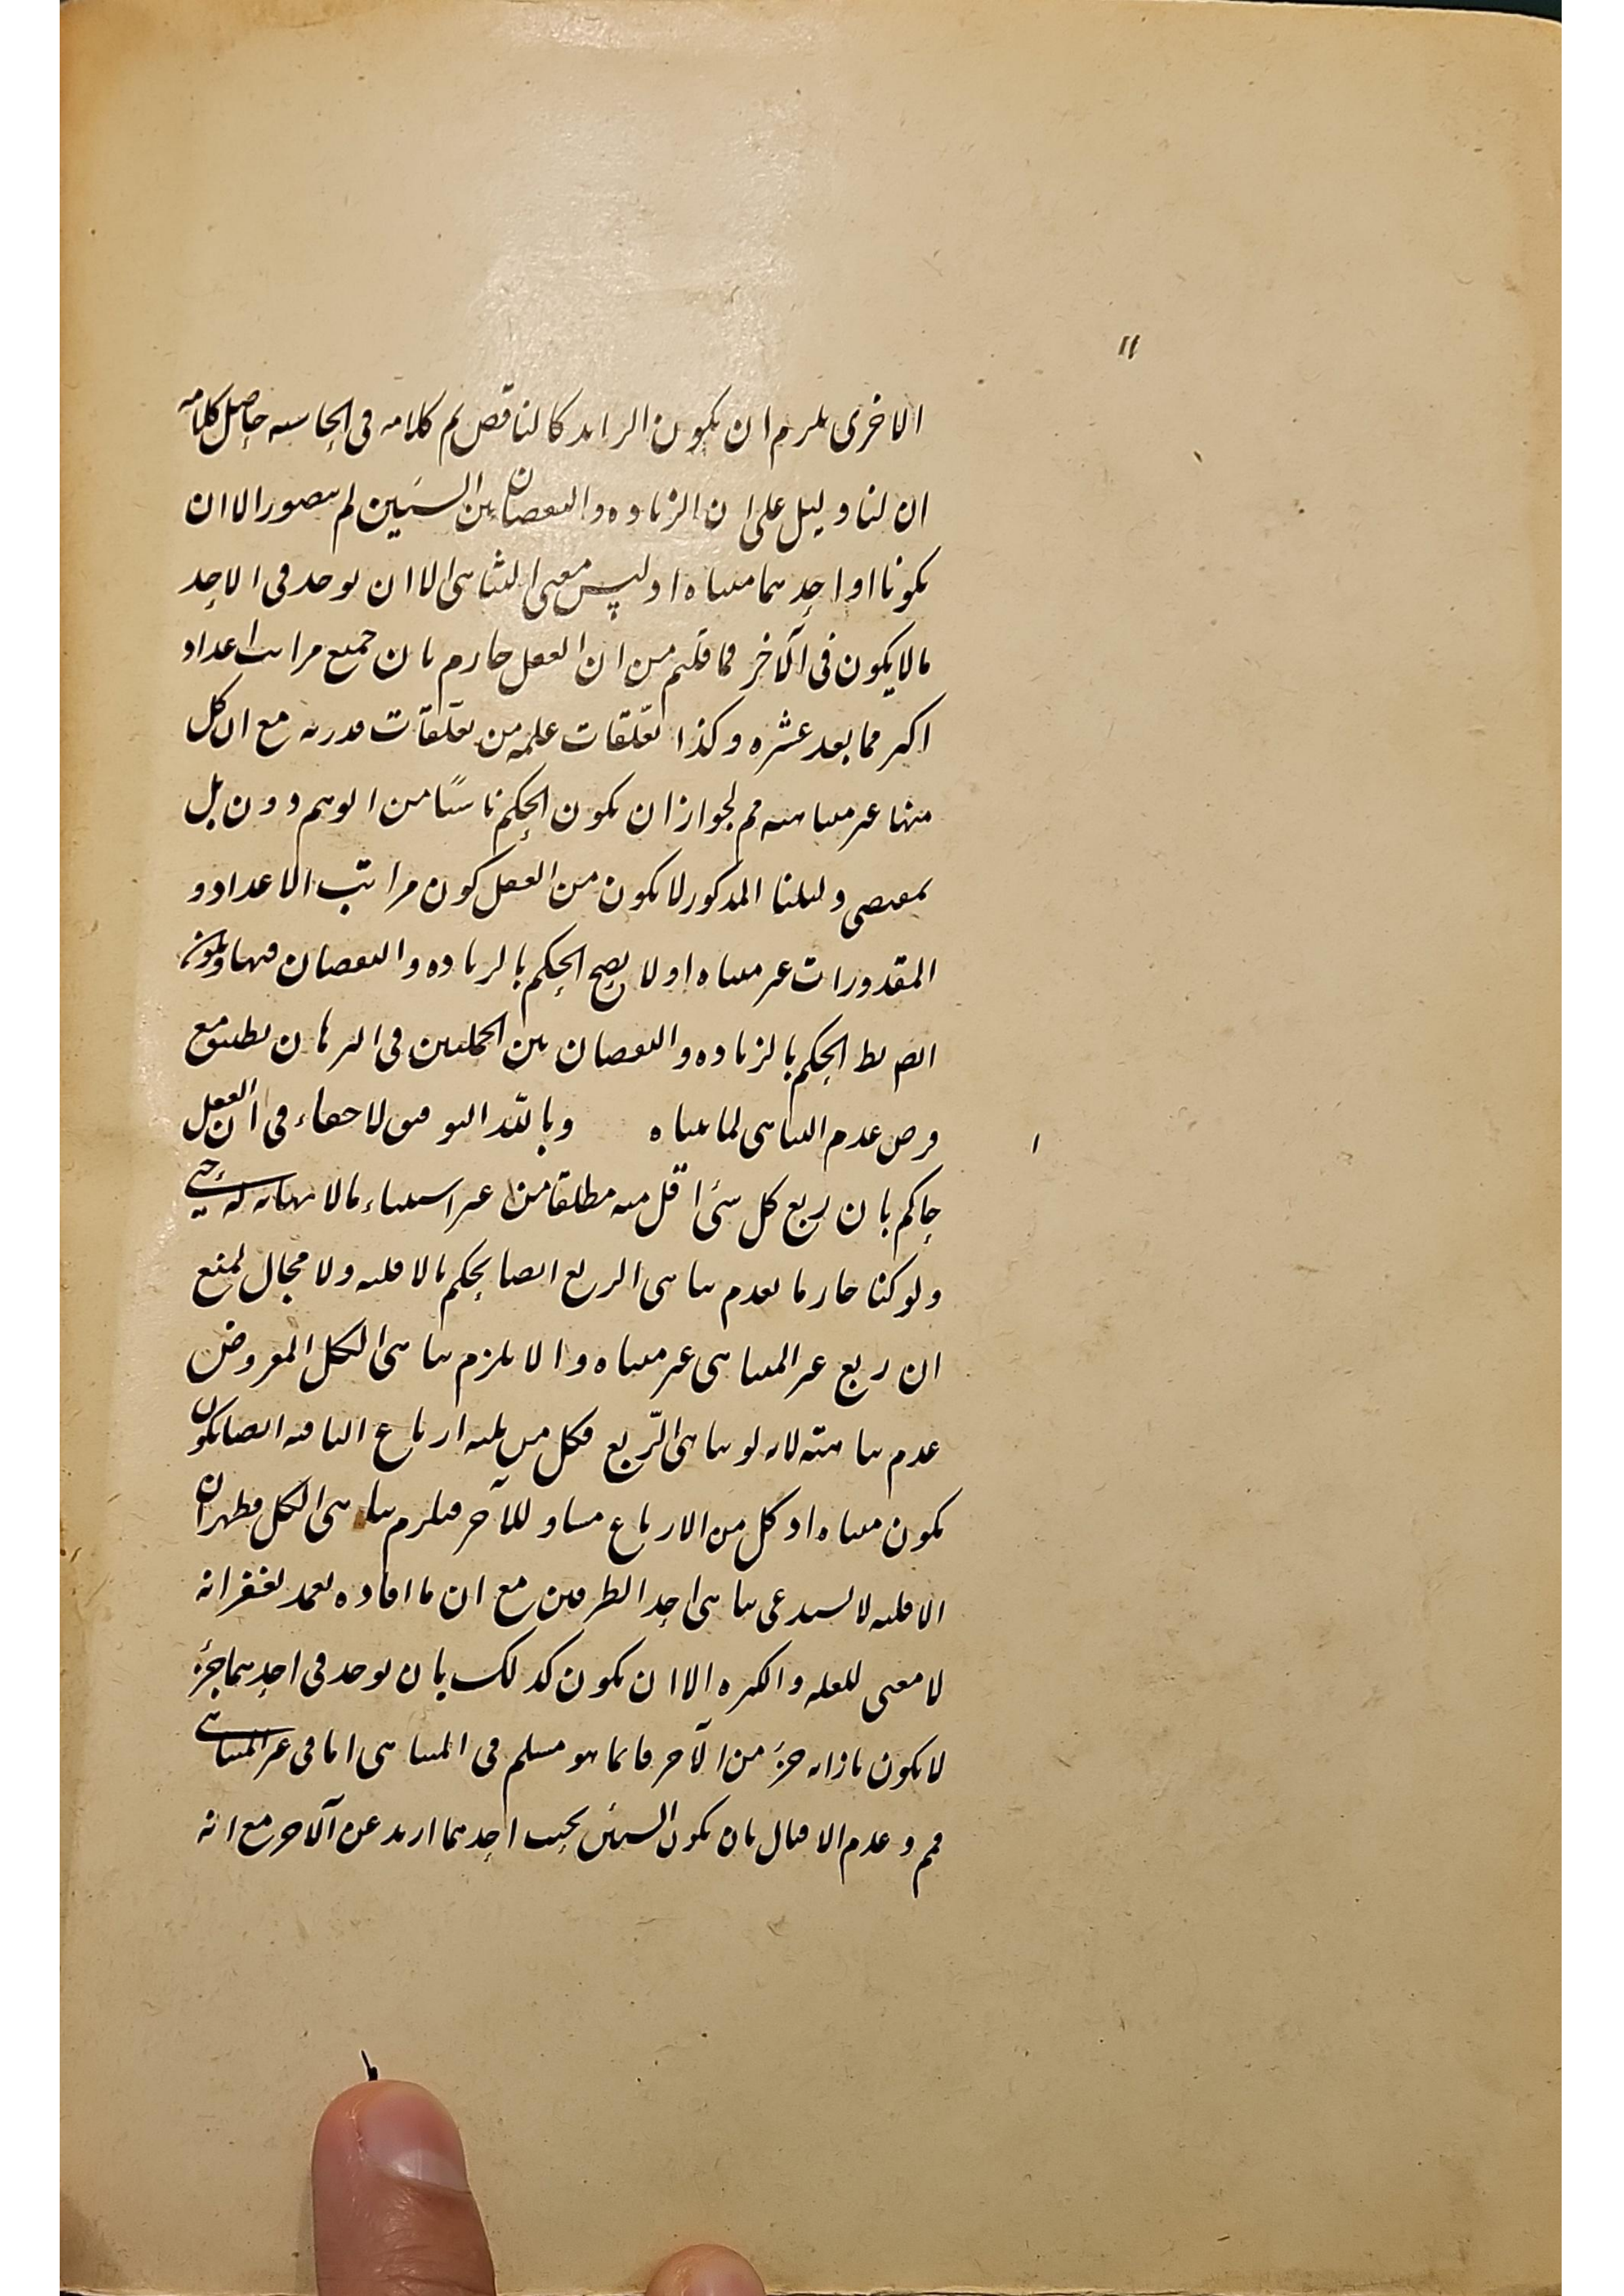 ١١
الاخرى يلزم ان يكون الزايد كالناقص تم كلامه في الحاشيه حاصل كلامه
ان لنا دليل على ان الزياده والنقصان بين الشيئين لم يتصور الا ان
يكونا او احدهما متناه اذ ليس معنى التناهى الا ان يوجد فى الاحد
مالا يكون فى الآخر فما قلتم من ان العقل جازم بان جميع مراتب اعداد
اكثر مما بعد عشره وكذا تعلقات علمه من تعلقات قدرته مع ان كل
منها غير متناهيه مم لجواز ان يكون الحكم ناشئا من الوهم دون بل
بمقتضى دليلنا المذكور لا يكون من العقل كون مراتب الاعداد و
المقدورات غير متناه اذ لا يصح الحكم بالزياده والنقصان فيها
الحكم بالزياده والنقصان بين الجملتين فى البرهان تطبيق مع
فرض عدم التناهى لما متناه وبالله التوفيق لا خفاء فى ان العقل
حاكم بان ربع كل شئ اقل منه مطلقا من غير استثناء مالا نهايه له حتى
ولو كنا جازما بعدم تناهى الربع ايضا يحكم بالاقليه ولا مجال لمنع
ان ربع غير المتناهى غير متناه والا يلزم تناهى الكل المفروض
عدم تناهيته لانه لو تناهى الربع فكل من ثلثه ارباع الباقيه ايضا يكون
يكون متناه اذ كل من الارباع مساو للآخر فيلزم تناهى الكل فظهر ان
الاقليه لا يستدعى تناهى احد الطرفين مع ان ما افاده بغفرانه
لا معنى للقله والكثره الا ان يكون كذلك بان يوجد فى احدهما جزء
لا يكون بازائه جزء من الآخر فانما هو مسلم فى المتناهى اما فى غير المتناهى
مم وعدم بان يكون الشيئين بحيث احدهما ازيد عن الآخر مع انه